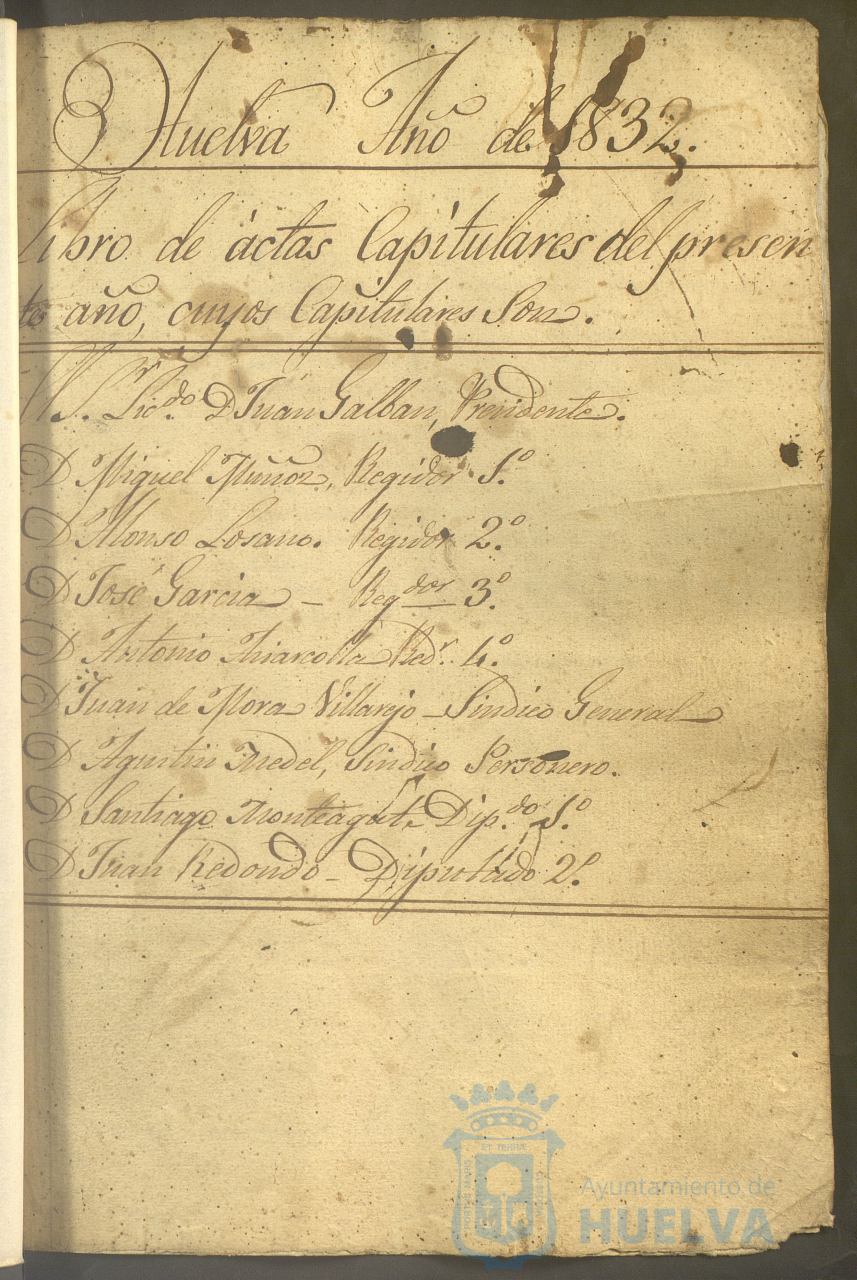 Huelva Año de 1832.
Libro de áctas Capitulares del presen
te año, cuyos Capitulares Son.
S.r Lic.do D Juan Galban, Presidente.
D Miguel Muñoz, Regidor 1.º
D Alonso Losano. Regidor 2.º
D José Garcia - Reg.dor 3.º
D Antonio Red.r 4.º
D Juan de Mora Villarejo - Sindico General
D Agustin Medel, Sindico Personero.
D Santiago Dip.do 1.º
D Juan Redondo - Diputado 2.º
ET TERRÆ
Ayuntamiento de
HUELVA